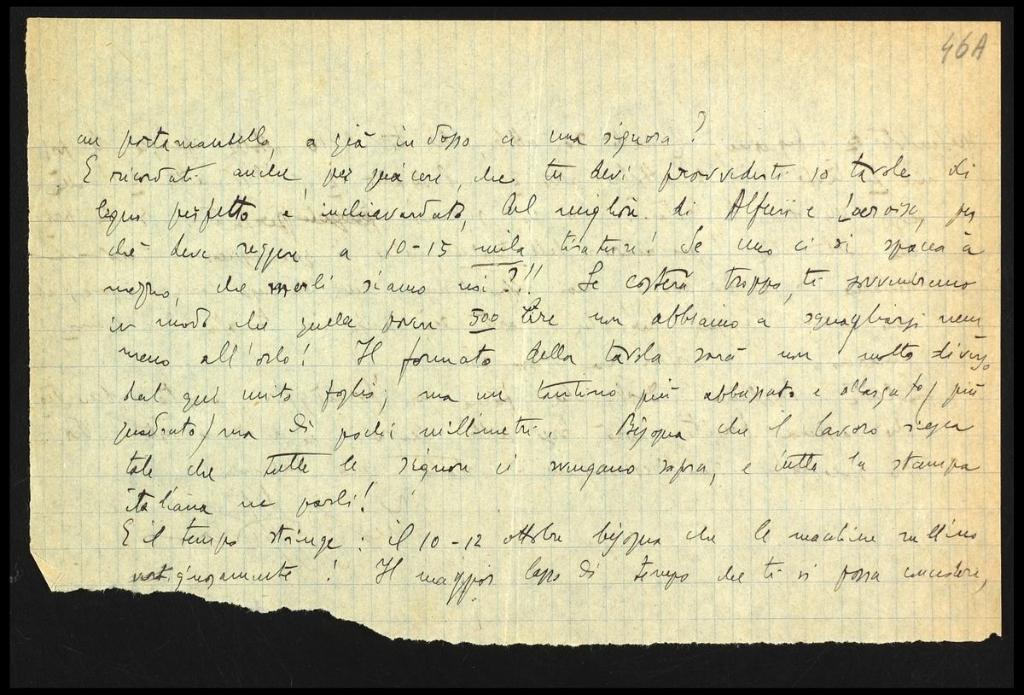 46A
un portamantello, o già indosso a una signora?
E ricordati anche, per piacere, che tu devi provvederti 10 tavole di
legno perfetto e inchiavardato, del migliore di Alfieri e Lacroix, per
chè deve reggere a 10-15 mila tirature! Se uno ci si spacca a
mezzo, che merli siamo noi?!! Se costerà troppo, ti sovverremo
in modo che quelle povere 500 lire non abbiamo a squagliarsi nem
meno all'orlo! Il formato della tavola sarà non molto diverso
dal qui unito foglio; ma un tantino più abbassato e allargato/più
quadrato/ma di pochi millimetri. Bisogna che il lavoro riesca
tale che tutte le signore ci svengano sopra, e tutta la stampa
italiana ne parli!
E il tempo stringe: il 10-12 ottobre bisogna che le macchine rullino
! Il maggior lasso di tempo che ti si possa concedere,